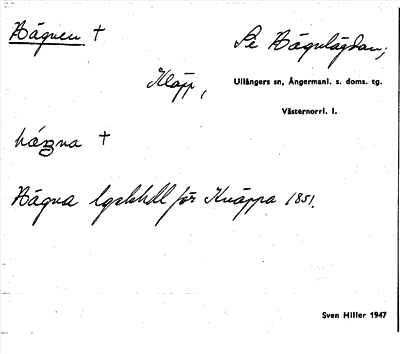 Bägnen †
Se Bägnlägdan;
Kläpp,
Ullångers sn, Ångermanl. s. doms. tg.
Västernorrl. l.
bägna †
Bägna lgskhdl för Knäppa 1851.
Sven Hiller 1947